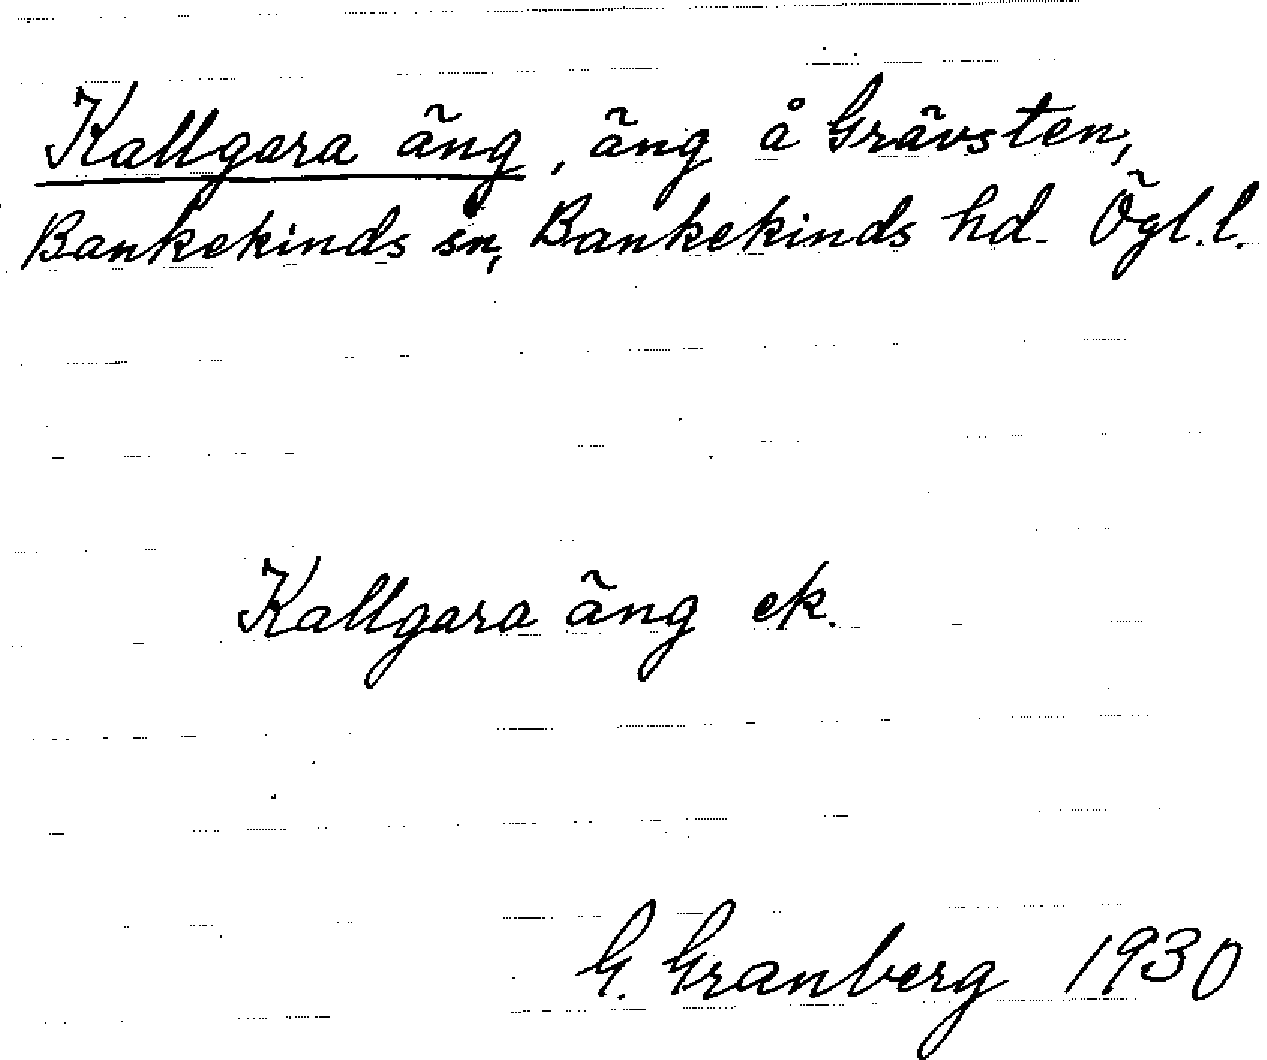 Kallgara äng, äng å Grävsten,
Bankekinds sn, Bankekinds hd. Ögl. l.
Kallgara äng ek.
G. Granberg 1930